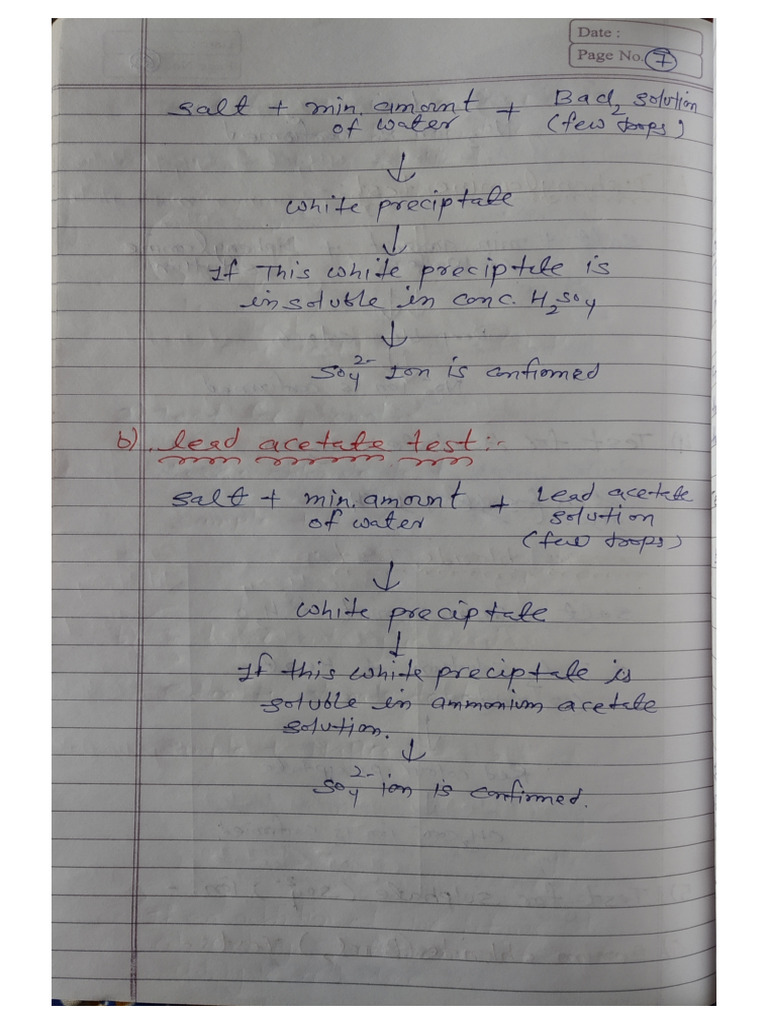 Date :
Page No. 7
Salt + min. amount + BaCl2 solution
of water (few drops)
↓
White preciptate
↓
If This white preciptate is
insoluble in conc. H2SO4
↓
SO4 2- Ion is confirmed
b). lead acetate test:-
Salt + min. amount + Lead acetate
of water solution
(few drops)
↓
White preciptate
↓
If this white preciptate is
soluble in ammonium acetate
solution.
↓
SO4 2- ion is confirmed.